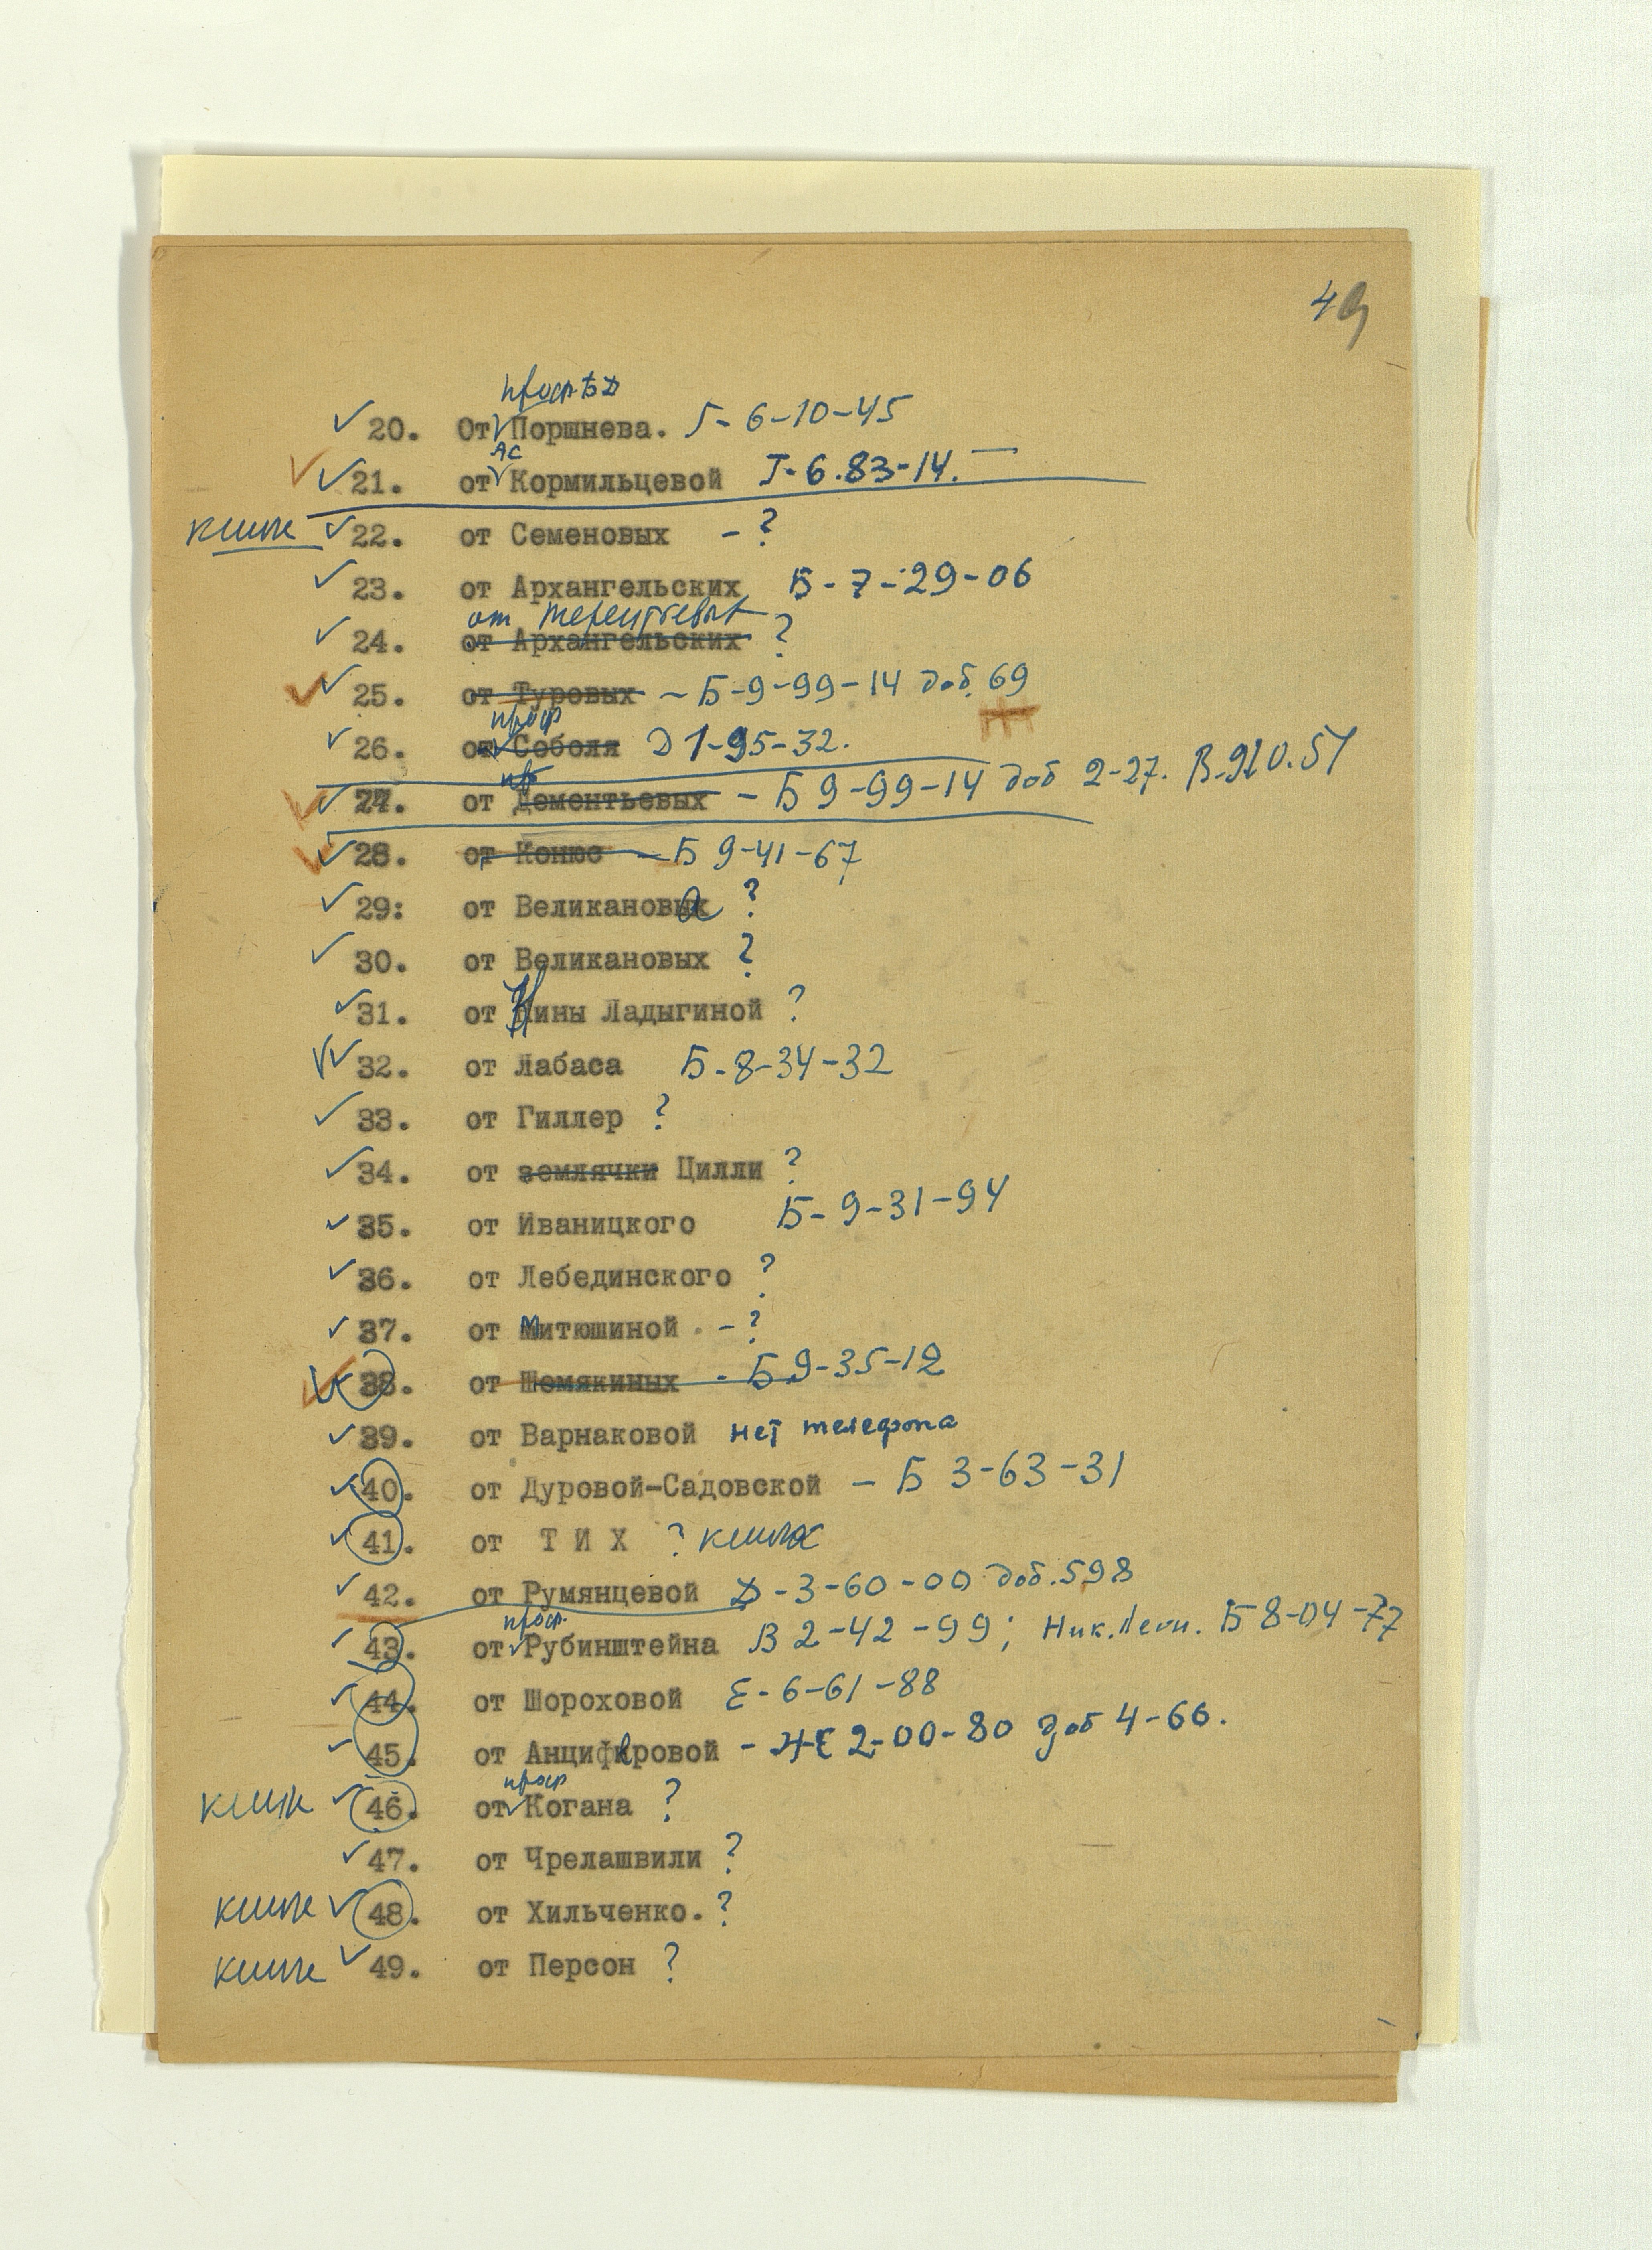 49
проф. Б.Ф.
20. От Поршнева. Г- 6-10-45
АС
21. от Кормильцевой Г-6.83-14.
22. от Семеновых - ?
23. от Архангельских Б-7-29-06
от Терентьевых
24. от Архангельских ?
25. от Туровых - Б-9-99-14 доб. 69
проф
26. от Соболя Д 1-95-32.
27. от Дементьевых - Б 9-99-14 доб 2-27. В-910.51
28. от Конюс - Б 9-41-67
29: от Великанова ?
30. от Великановых ?
31. от Нины Ладыгиной ?
32. от Лабаса Б-8-34-32
33. от Гиллер ?
34. от землячки Цилли ?
35. от Иваницкого Б-9-31-94
36. от Лебединского ?
37. от Митюшиной - ?
38. от Шемякиных - Б 9-35-12
39. от Варнаковой нет телефона
40. от Дуровой-Садовской - Б 3-63-31
41. от Т И Х ?
42. от Румянцевой Д-3-60-00 доб. 598
проф.
43. от Рубинштейна В 2-42-99; Ник. Леон. Б 8-04-77
44. от Шороховой Е-6-61-88
45. от Анциферовой - ЖЕ 2-00-80 доб 4-66.
проф
46. от Когана ?
47. от Чрелашвили ?
48. от Хильченко. ?
49. от Персон ?